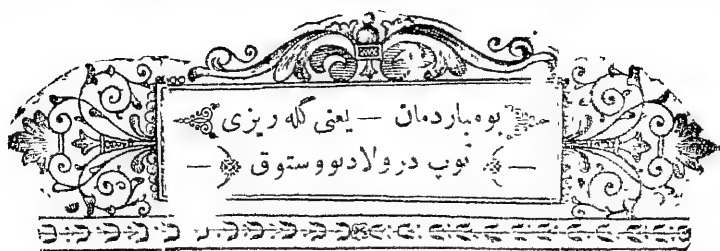 بومباردمان — یعنی گله ریزی
توپ در ولادیووستوق